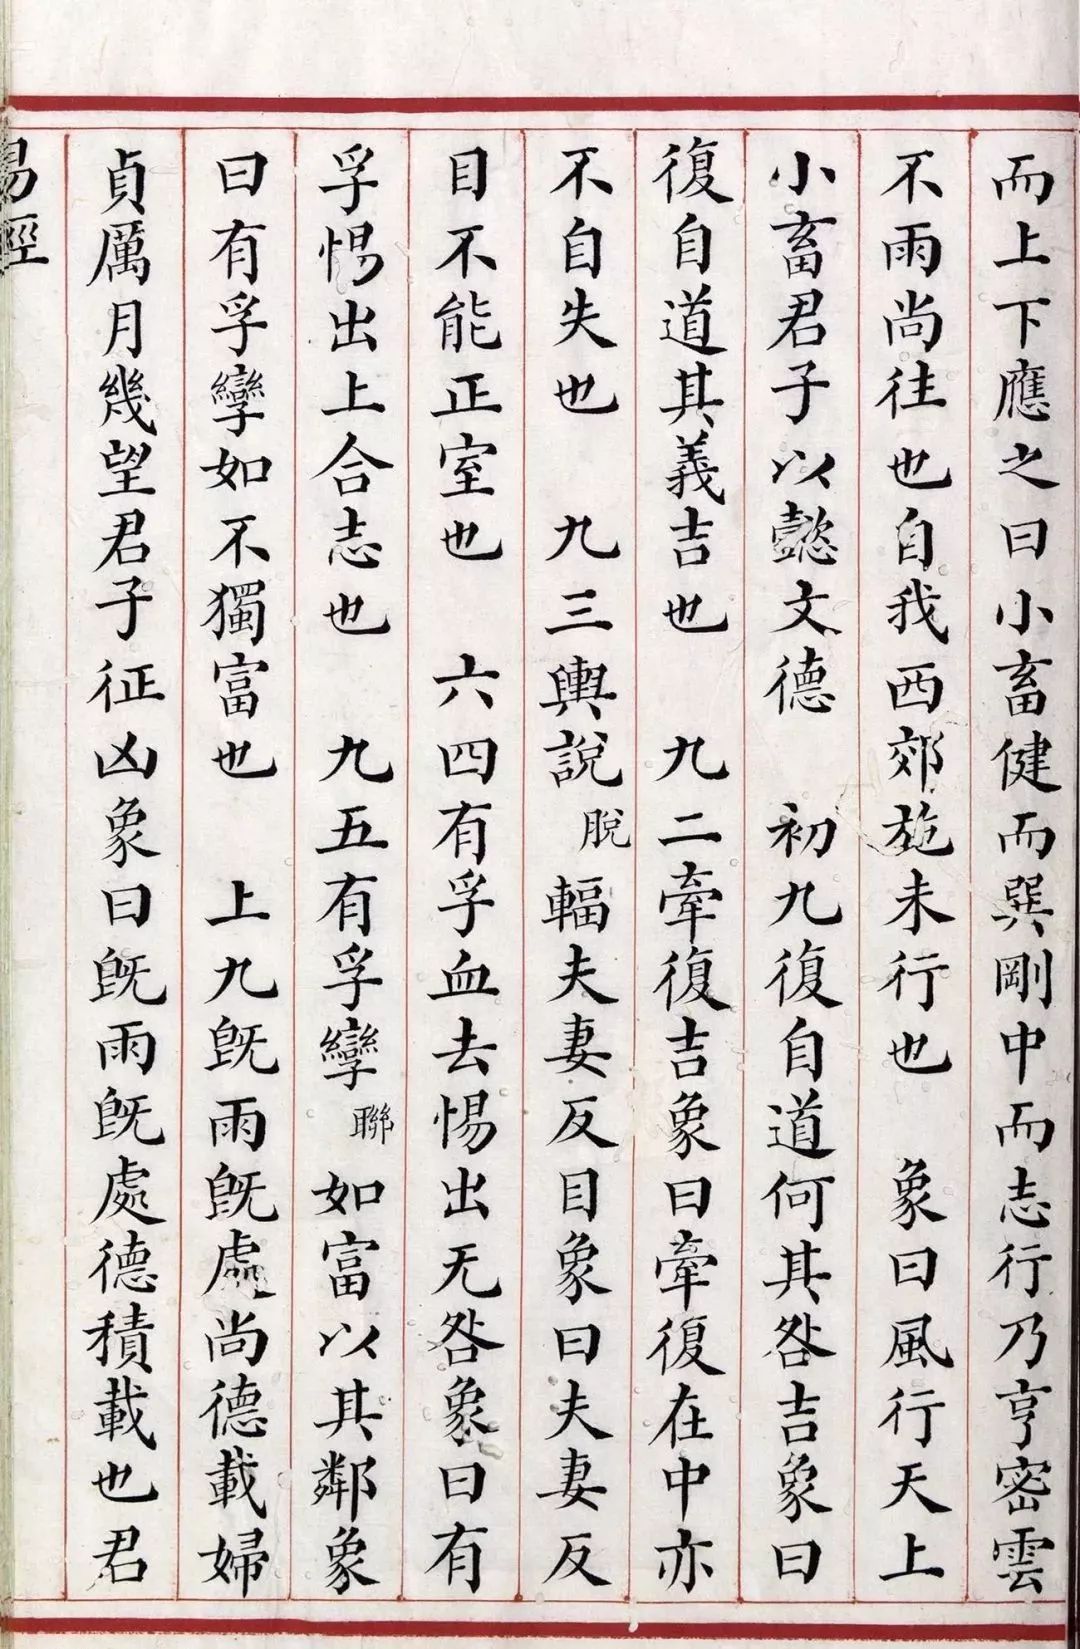 而上下應之曰小畜健而巽剛中而志行乃亨密雲
不雨尚往也自我西郊施未行也 象曰風行天上
小畜君子以懿文德 初九復自道何其咎吉象曰
復自道其義吉也 九二牽復吉象曰牽復在中亦
不自失也 九三輿說脫輻夫妻反目象曰夫妻反
目不能正室也 六四有孚血去惕出无咎象曰有
孚惕出上合志也 九五有孚攣聯如富以其鄰象
曰有孚攣如不獨富也 上九旣雨旣處尚德載婦
貞厲月幾望君子征凶象曰旣雨旣處德積載也君
易經